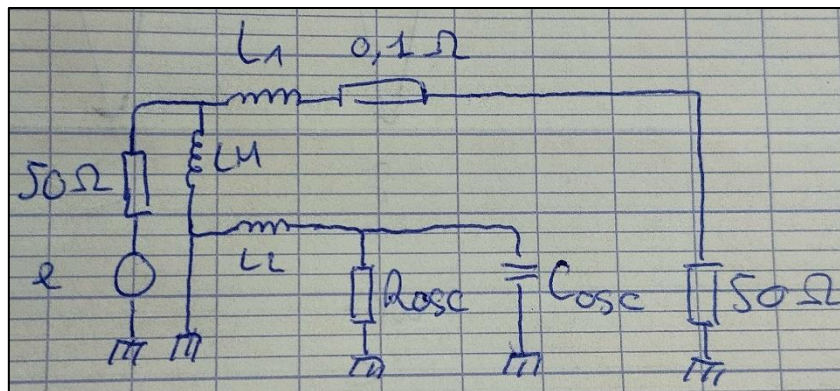 L1 0,1 Ω
50Ω LM
L2
e Rosc Cosc 50Ω